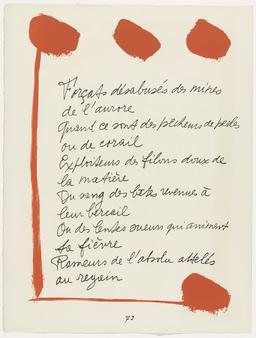 Forçats désabusés des mines
de l'aurore
Quand ce sont des pêcheurs de perles
ou de corail
Exploiteurs des filons doux de
la matière
Du sang des bêtes revenues à
leur bercail
Ou des lentes sueurs qui animent
la fièvre
Rameurs de l'absolu attelés
au regain
73